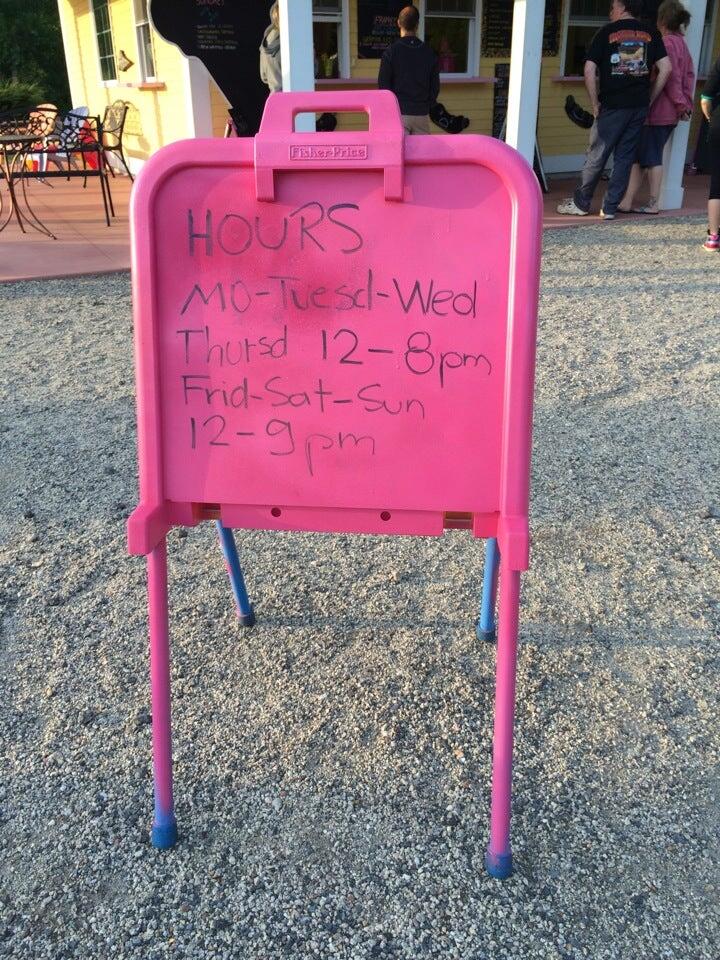 Fisher-Price
HOURS
MO-Tuesd-Wed
Thursd 12-8pm
Frid-Sat-Sun
12-9pm